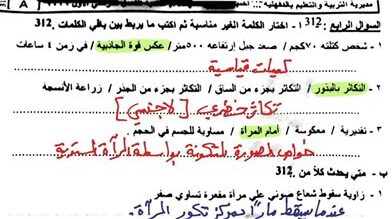 مديرية التربية والتعليم بالدقهلية
A
السؤال الرابع : 312 ١ - اختار الكلمة الغير مناسبة ثم اكتب ما يربط بين باقي الكلمات 312.
١ - شخص كتلته ٧٠كجم / صعد جبل إرتفاعه ٥٠٠متر / عكس قوة الجاذبية / في زمن ٤ ساعات
كميات قياسية
٢ - التكاثر بالبذور / التكاثر بجزء من الساق / التكاثر بجزء من الجذر / زراعة الأنسجة
تكاثر خضري [لاجنسي]
٣ - تقديرية / معكوسة / أمام المرآة / مساوية للجسم في الحجم
خواص الصورة المتكونة بواسطة المرآة المستوية
ب - متي يحدث كلاً من 312.
١ - زاوية سقوط شعاع ضوئي علي مرآة مقعرة تساوي صفر
عندما يسقط ماراً بمركز تكور المرآة.